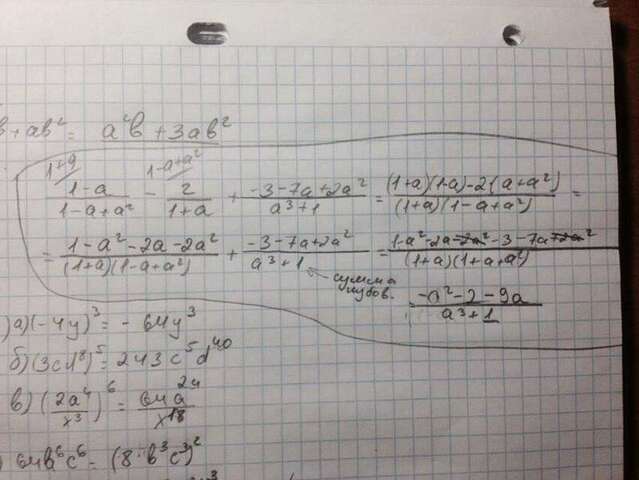 b+ab² = a²b + 3ab²
1+a 1-a+a²
(1-a)/(1-a+a²) - 2/(1+a) + (-3-7a+2a²)/(a³+1) = ((1+a)(1-a)-2(a+a²))/((1+a)(1-a+a²)) =
= (1-a²-2a-2a²)/((1+a)(1-a+a²)) + (-3-7a+2a²)/(a³+1) = (1-a²-2a-2a²-3-7a+2a²)/((1+a)(1+a+a²))
сумма
кубов.
= (-a²-2-9a)/(a³+1)
)а)(-4y)³ = - 64y³
б)(3cd⁸)⁵ = 243c⁵d⁴⁰
в)(2a⁴/x³)⁶ = 64a²⁴/x¹⁸
) 64b⁶c⁶ = (8·b³c³)²